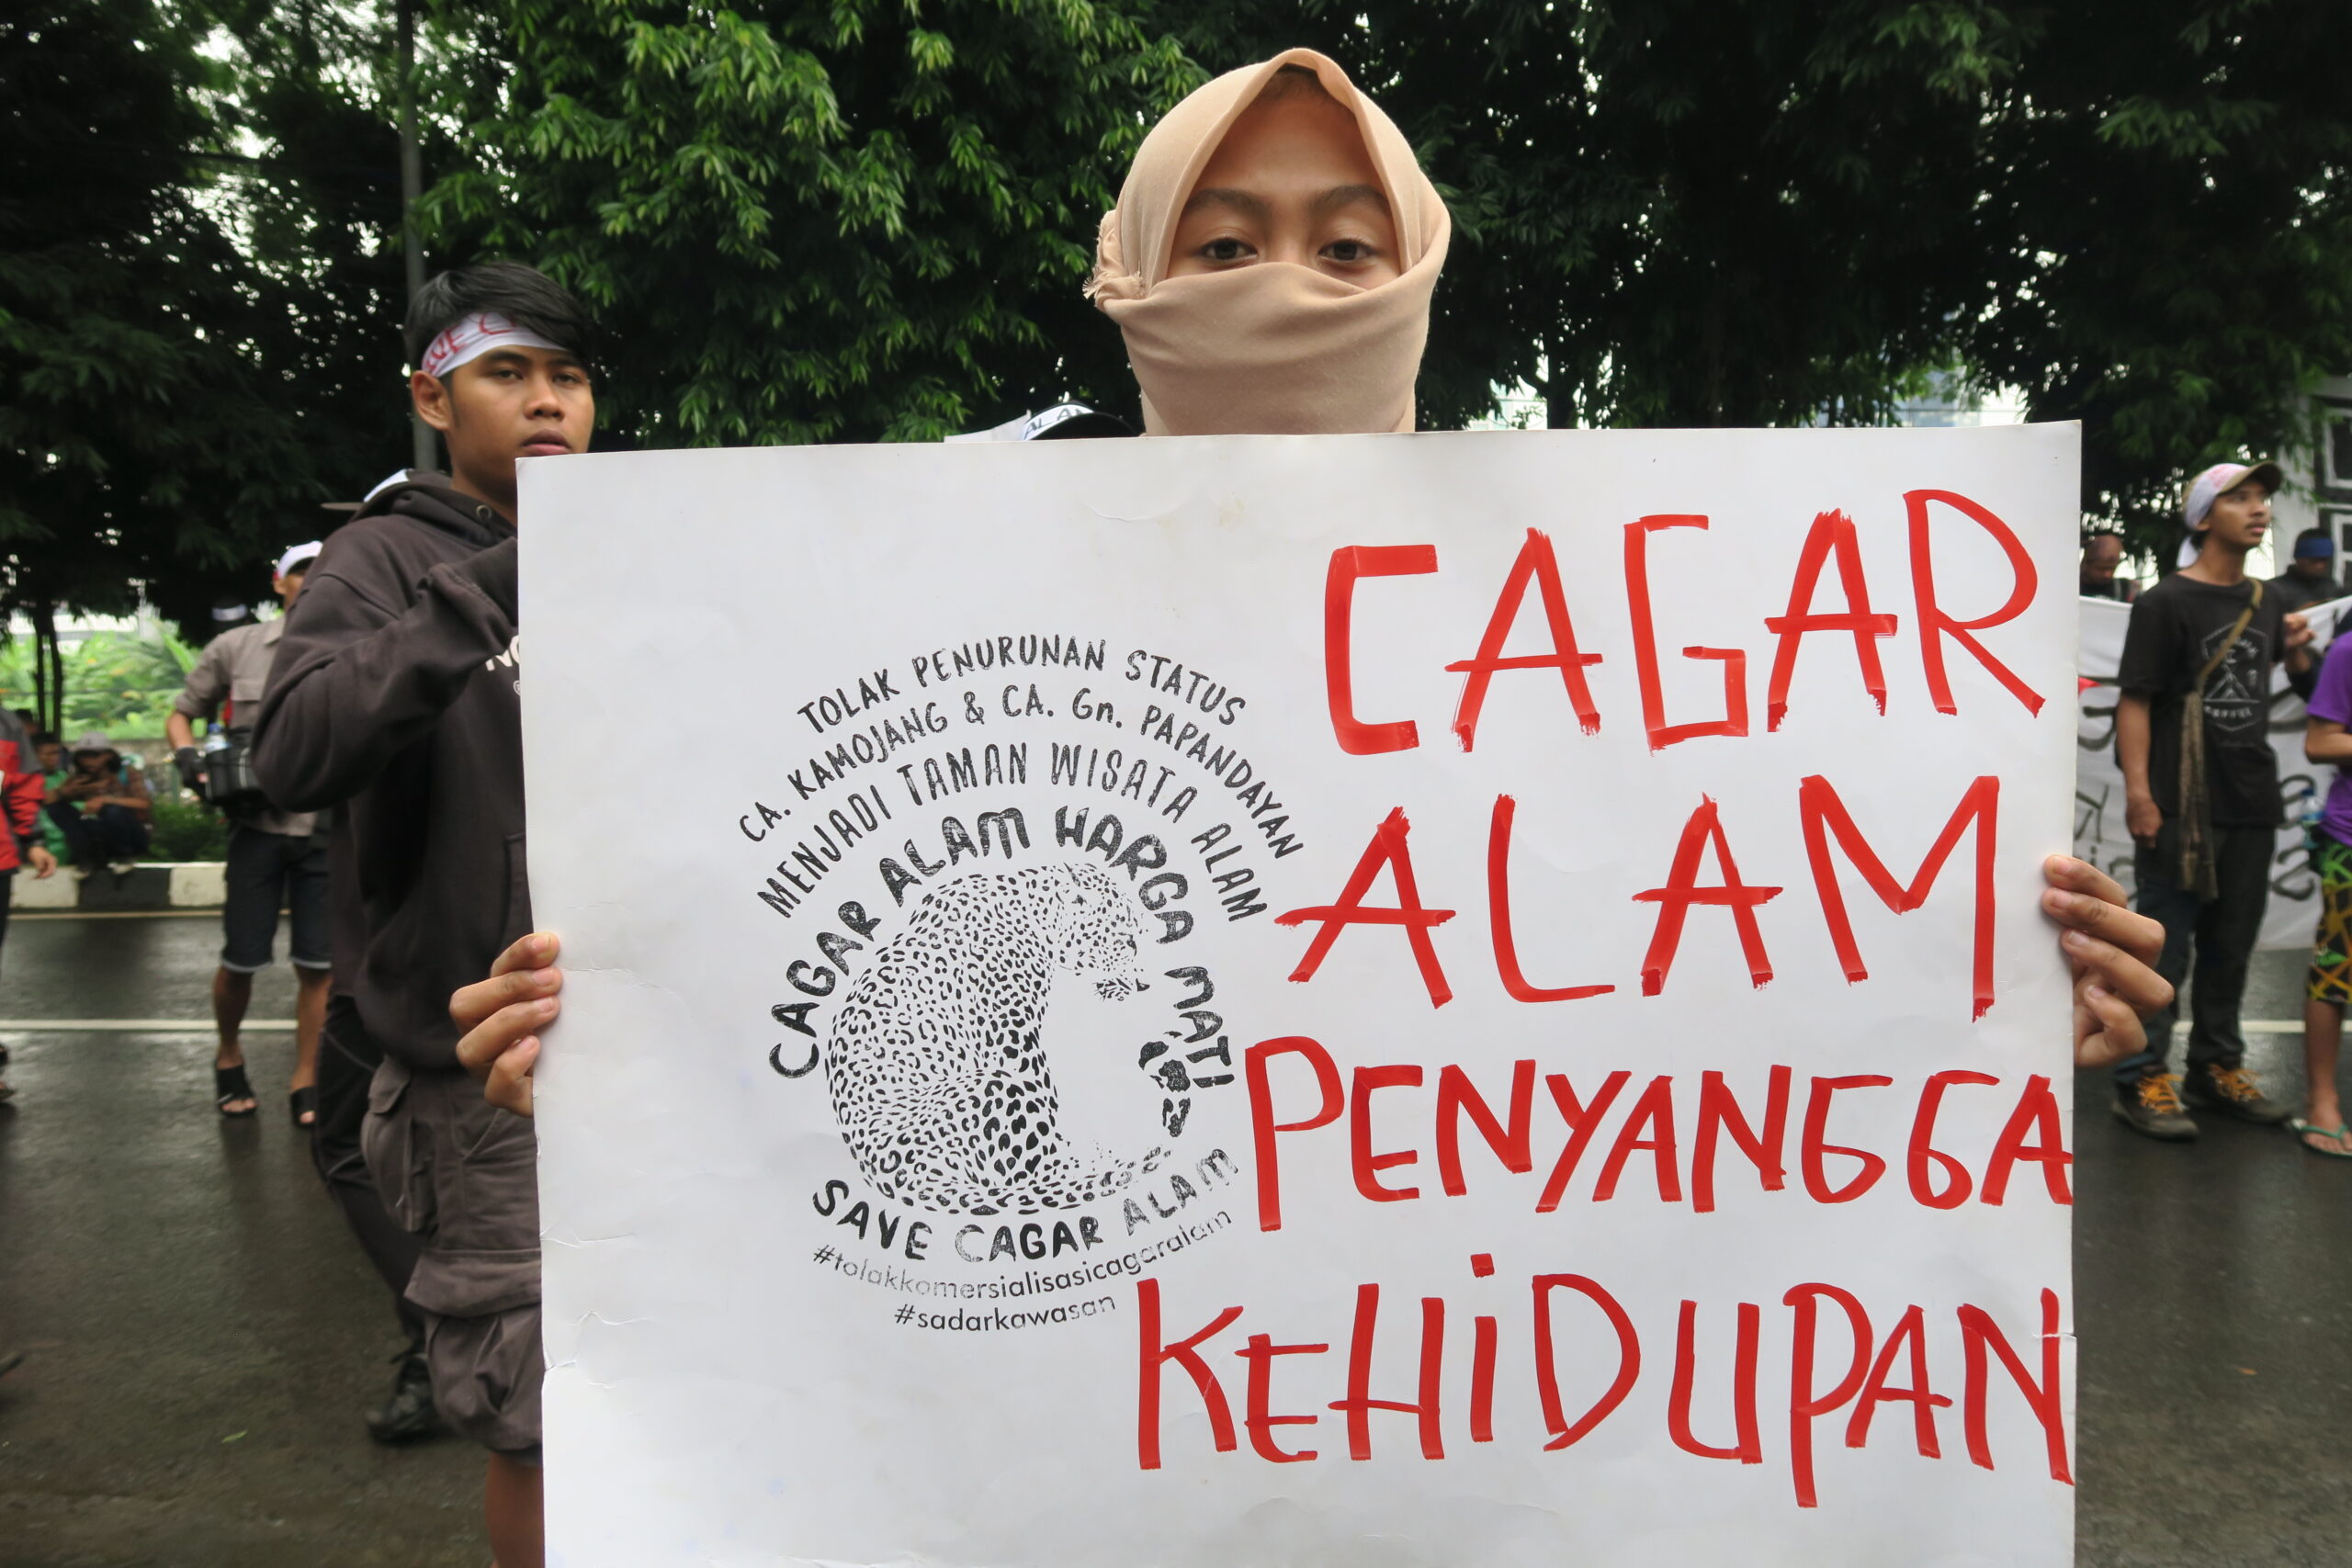 TOLAK PENURUNAN STATUS
CA. KAMOJANG & CA. Gn. PAPANDAYAN
MENJADI TAMAN WISATA ALAM
CAGAR ALAM HARGA MATI
SAVE CAGAR ALAM
#tolakkomersialisasicagaralam
#sadarkawasan
CAGAR
ALAM
PENYANGGA
KEHiDUPAN